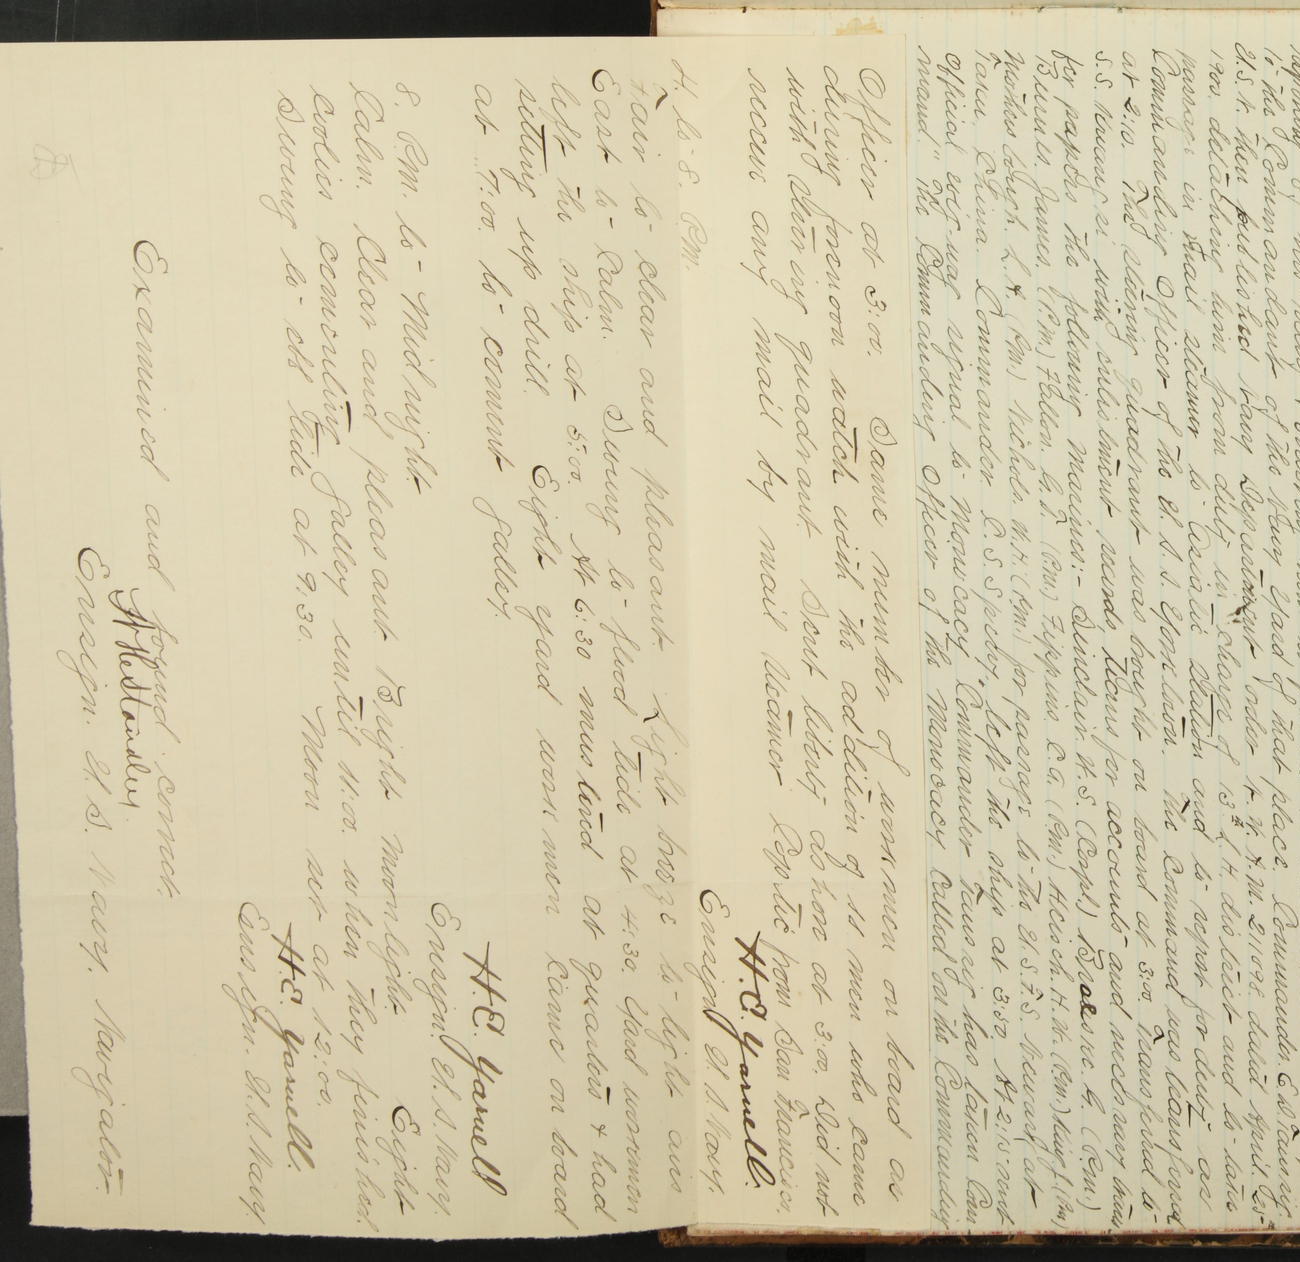 to the Commandant of the Navy Yard of that place. Commander E. D. Taussig
U.S.N. then published Navy Department order No. 21098 dated April 25th
1900. detaching him from duty in charge of 13th L. H. district and to take
passage in mail steamer to Asiatic Station and to report for duty as
Commanding Officer of the U. S. S. Yorktown. The Command was transferred
at 2:10. The steering quadrant was brought on board at 3:00 Transferred to
S.S. with enlistment records for accounts and necessary
per papers the following marines:- Sinclair W. S. (Corpl) G. (Pvt)
Burns James (Pvt) Fallon G. F. (Pvt) C. A. (Pvt) H. W. (Pvt) King J. (Pvt)
L. A. (Pvt) Nichols W. H. (Pvt) for passage to the U.S.F.S. Newark at
Taku, China. Commander C. S. Sperry, left the ship at 3:30 At 2:15 sent
Official wig-wag signal to Monocacy "Commander Taussig has taken Com
mand" The Commanding Officer of the Monocacy called on the Commanding
Officer at 3:00. Same number of workmen on board as
during forenoon watch with the addition of 11 men who came
with steering quadrant. Sent liberty ashore at 3:00. Did not
receive any mail by mail steamer Coptic from San Francisco.
H.E. Yarnell.
Ensign U.S. Navy.
4. to 8. P.m.
Fair to clear and pleasant. Light breeze to light airs
East to Calm. Swung to flood tide at 4:30. Yard workmen
left the ship at 5:00. At 6:30 mustered at quarters & had
setting up drill. Eight yard workmen came on board
at 7:00 to cement galley.
H.E. Yarnell
Ensign. U.S. Navy.
8. P.m. to Midnight.
Calm. Clear and pleasant. Bright moonlight. Eight
Coolies cementing galley until 11:00. when they finished.
Swung to ebb tide at 9:30. Moon set at 12:00.
H.E. Yarnell.
Ensign. U.S. Navy
Examined and found correct.
W H Standley
Ensign. U. S. Navy. Navigator.